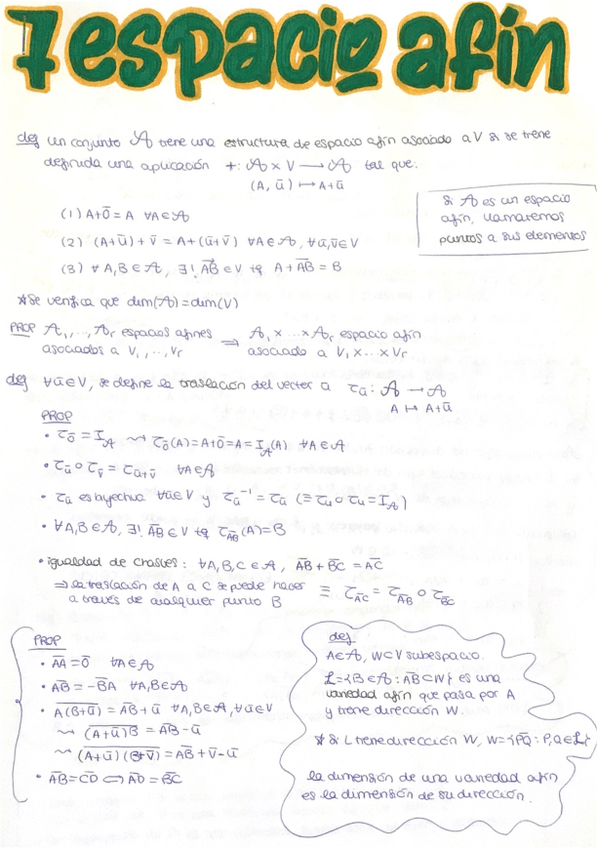 7 espacio afín
def un conjunto 𝒜 tiene una estructura de espacio afín asociado a V si se tiene
definida una aplicación +: 𝒜 × V ⟶ 𝒜 tal que:
(A, ū) ⟼ A+ū
si 𝒜 es un espacio
afín, llamaremos
puntos a sus elementos
(1) A+0̄ = A ∀A∈𝒜
(2) (A+ū)+v̄ = A+(ū+v̄) ∀A∈𝒜, ∀ū,v̄∈V
(3) ∀A,B∈𝒜, ∃! AB̄∈V tq A+AB̄ = B
*Se verifica que dim(𝒜)=dim(V)
PROP 𝒜₁,...,𝒜r espacios afines ⟹ 𝒜₁×...×𝒜r espacio afín
asociados a V₁,...,Vr asociado a V₁×...×Vr
def ∀ū∈V, se define la traslación del vector ū τū: 𝒜 ⟶ 𝒜
A ⟼ A+ū
PROP
• τ0̄ = I𝒜 ⇝ τ0̄(A)=A+0̄=A=I𝒜(A) ∀A∈𝒜
• τū ∘ τv̄ = τū+v̄ ∀A∈𝒜
• τū es biyectiva ∀ū∈V y τū⁻¹ = τū (≡ τu ∘ τu = I𝒜)
• ∀A,B∈𝒜, ∃! AB̄∈V tq τAB̄(A)=B
• igualdad de Chasles: ∀A,B,C∈𝒜, AB̄ + BC̄ = AC̄
⟹ la traslación de A a C se puede hacer ≡ τAC̄ = τAB̄ ∘ τBC̄
a través de cualquier punto B
PROP
• AĀ = 0̄ ∀A∈𝒜
• AB̄ = -BĀ ∀A,B∈𝒜
• A(B+ū) = AB̄ + ū ∀A,B∈𝒜, ∀ū∈V
⇝ (A+ū)B = AB̄ - ū
⇝ (A+ū)(B+v̄) = AB̄ + v̄ - ū
• AB̄ = CD̄ ⟺ AD̄ = BC̄
def
A∈𝒜, W⊂V subespacio.
ℒ={B∈𝒜 : AB̄⊂W} es una
variedad afín que pasa por A
y tiene dirección W.
* Si L tiene dirección W, W={PQ̄ : P,Q∈ℒ}
la dimensión de una variedad afín
es la dimensión de su dirección.